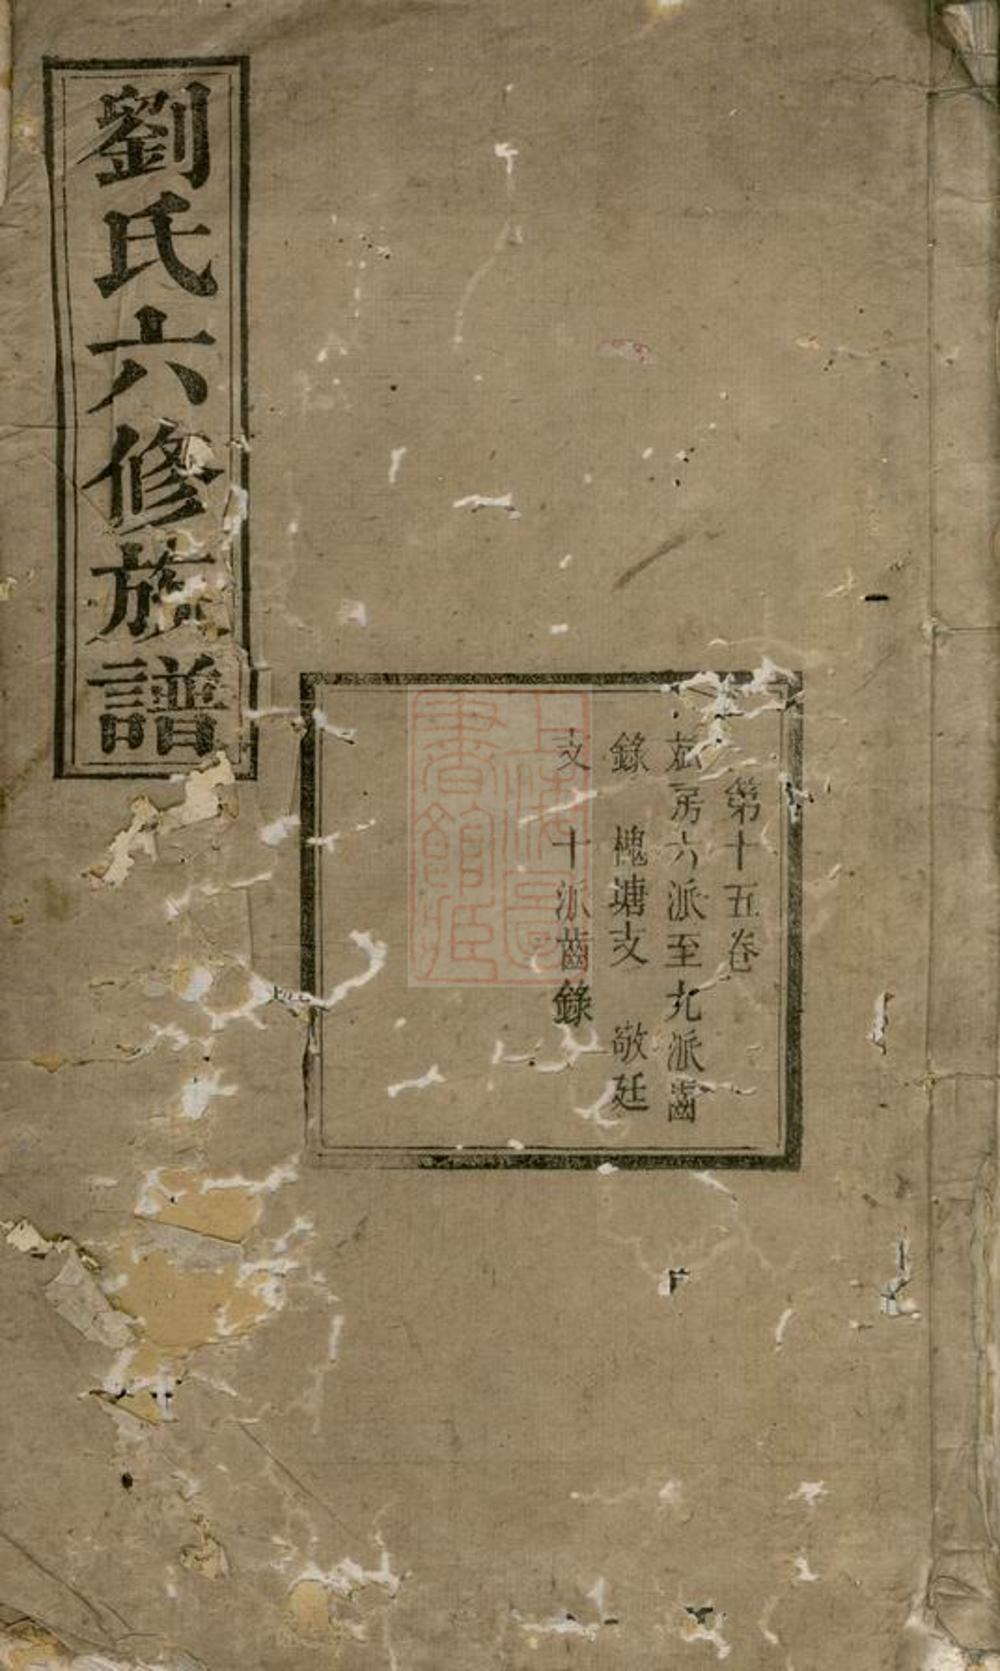 劉氏六修族譜
第十五卷
房六派至九派齒
錄 槐塘支 敬廷
支 十派齒錄
上海圖書館藏